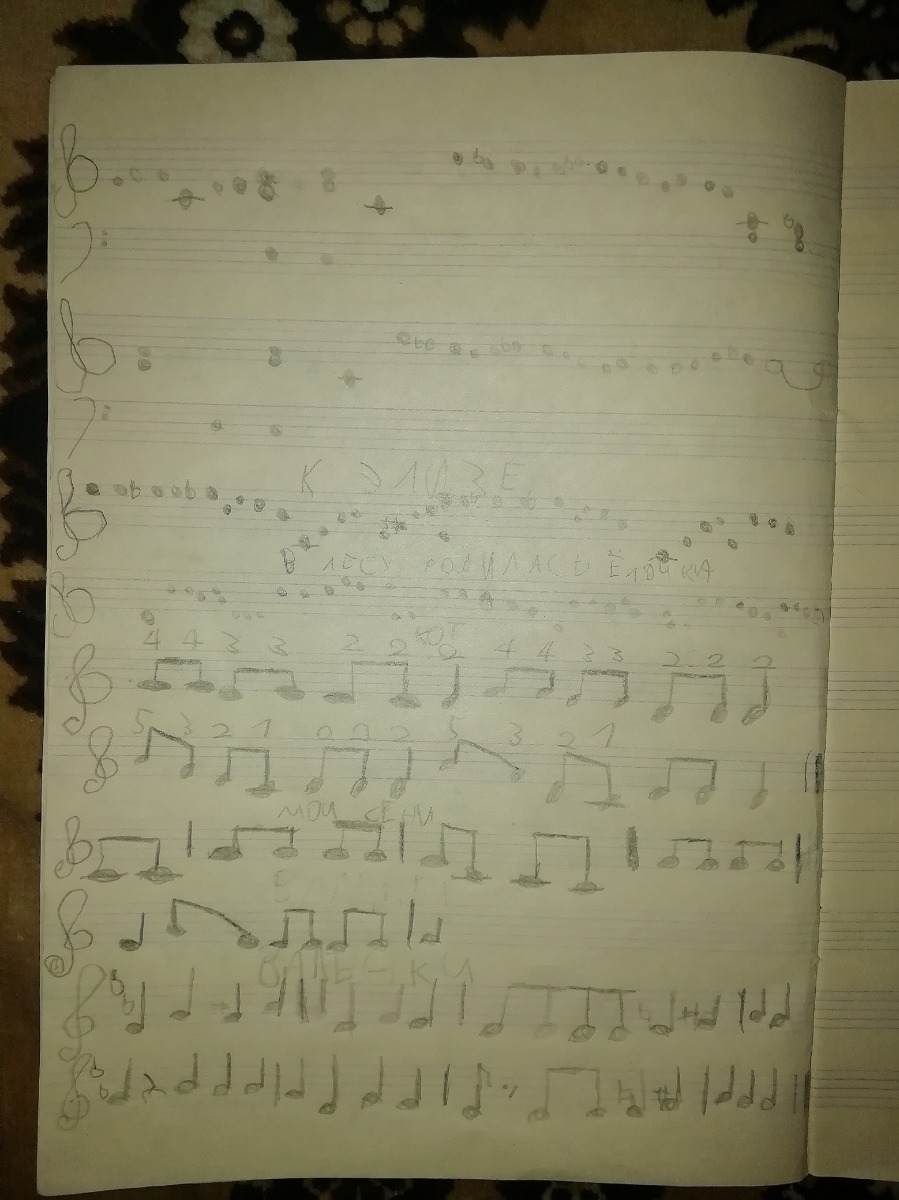 К ЭЛИЗЕ
В ЛЕСУ РОДИЛАСЬ ЁЛОЧКА
КОТ
4 4 3 3 2 2 2 4 4 3 3 2 2 2
5 3 2 1 2 2 2 5 3 2 1
МОИ СЕНИ